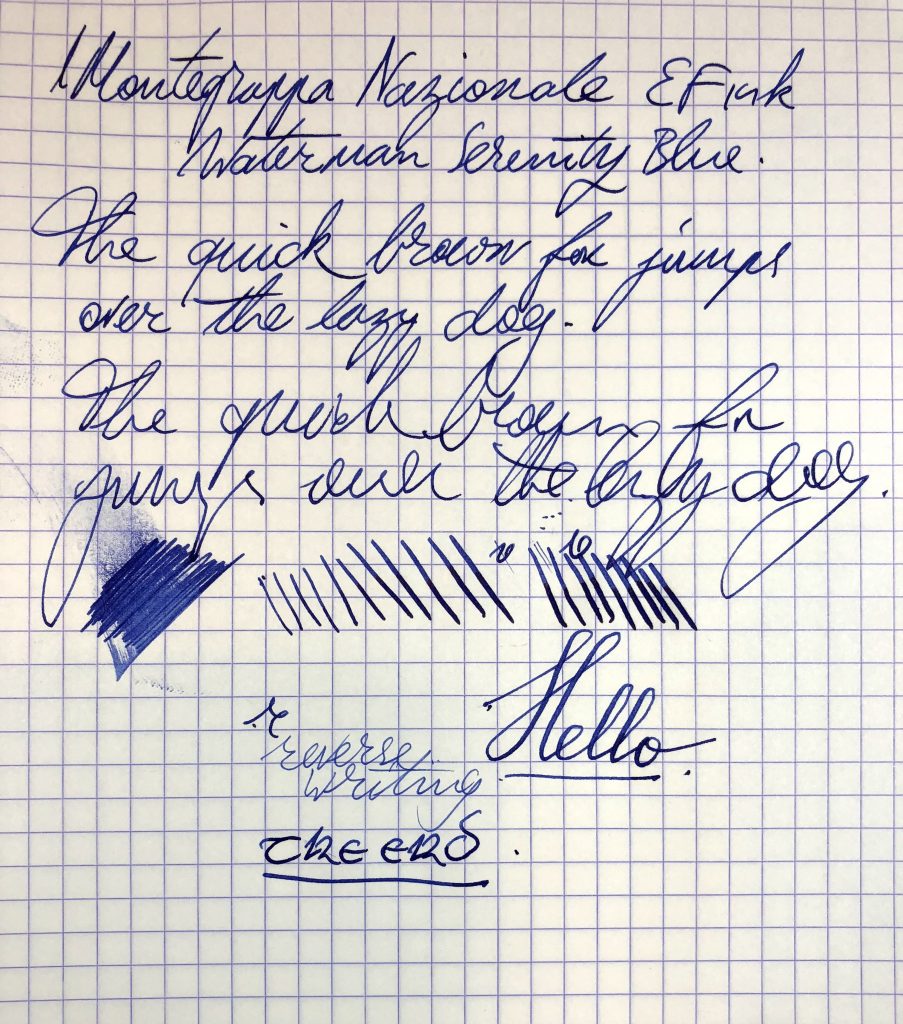 Montegrappa Nazionale EF ink
Waterman Serenity Blue.
The quick brown fox jumps
over the lazy dog.
The quick brown fox
jumps over the lazy dog.
Hello
reverse
writing